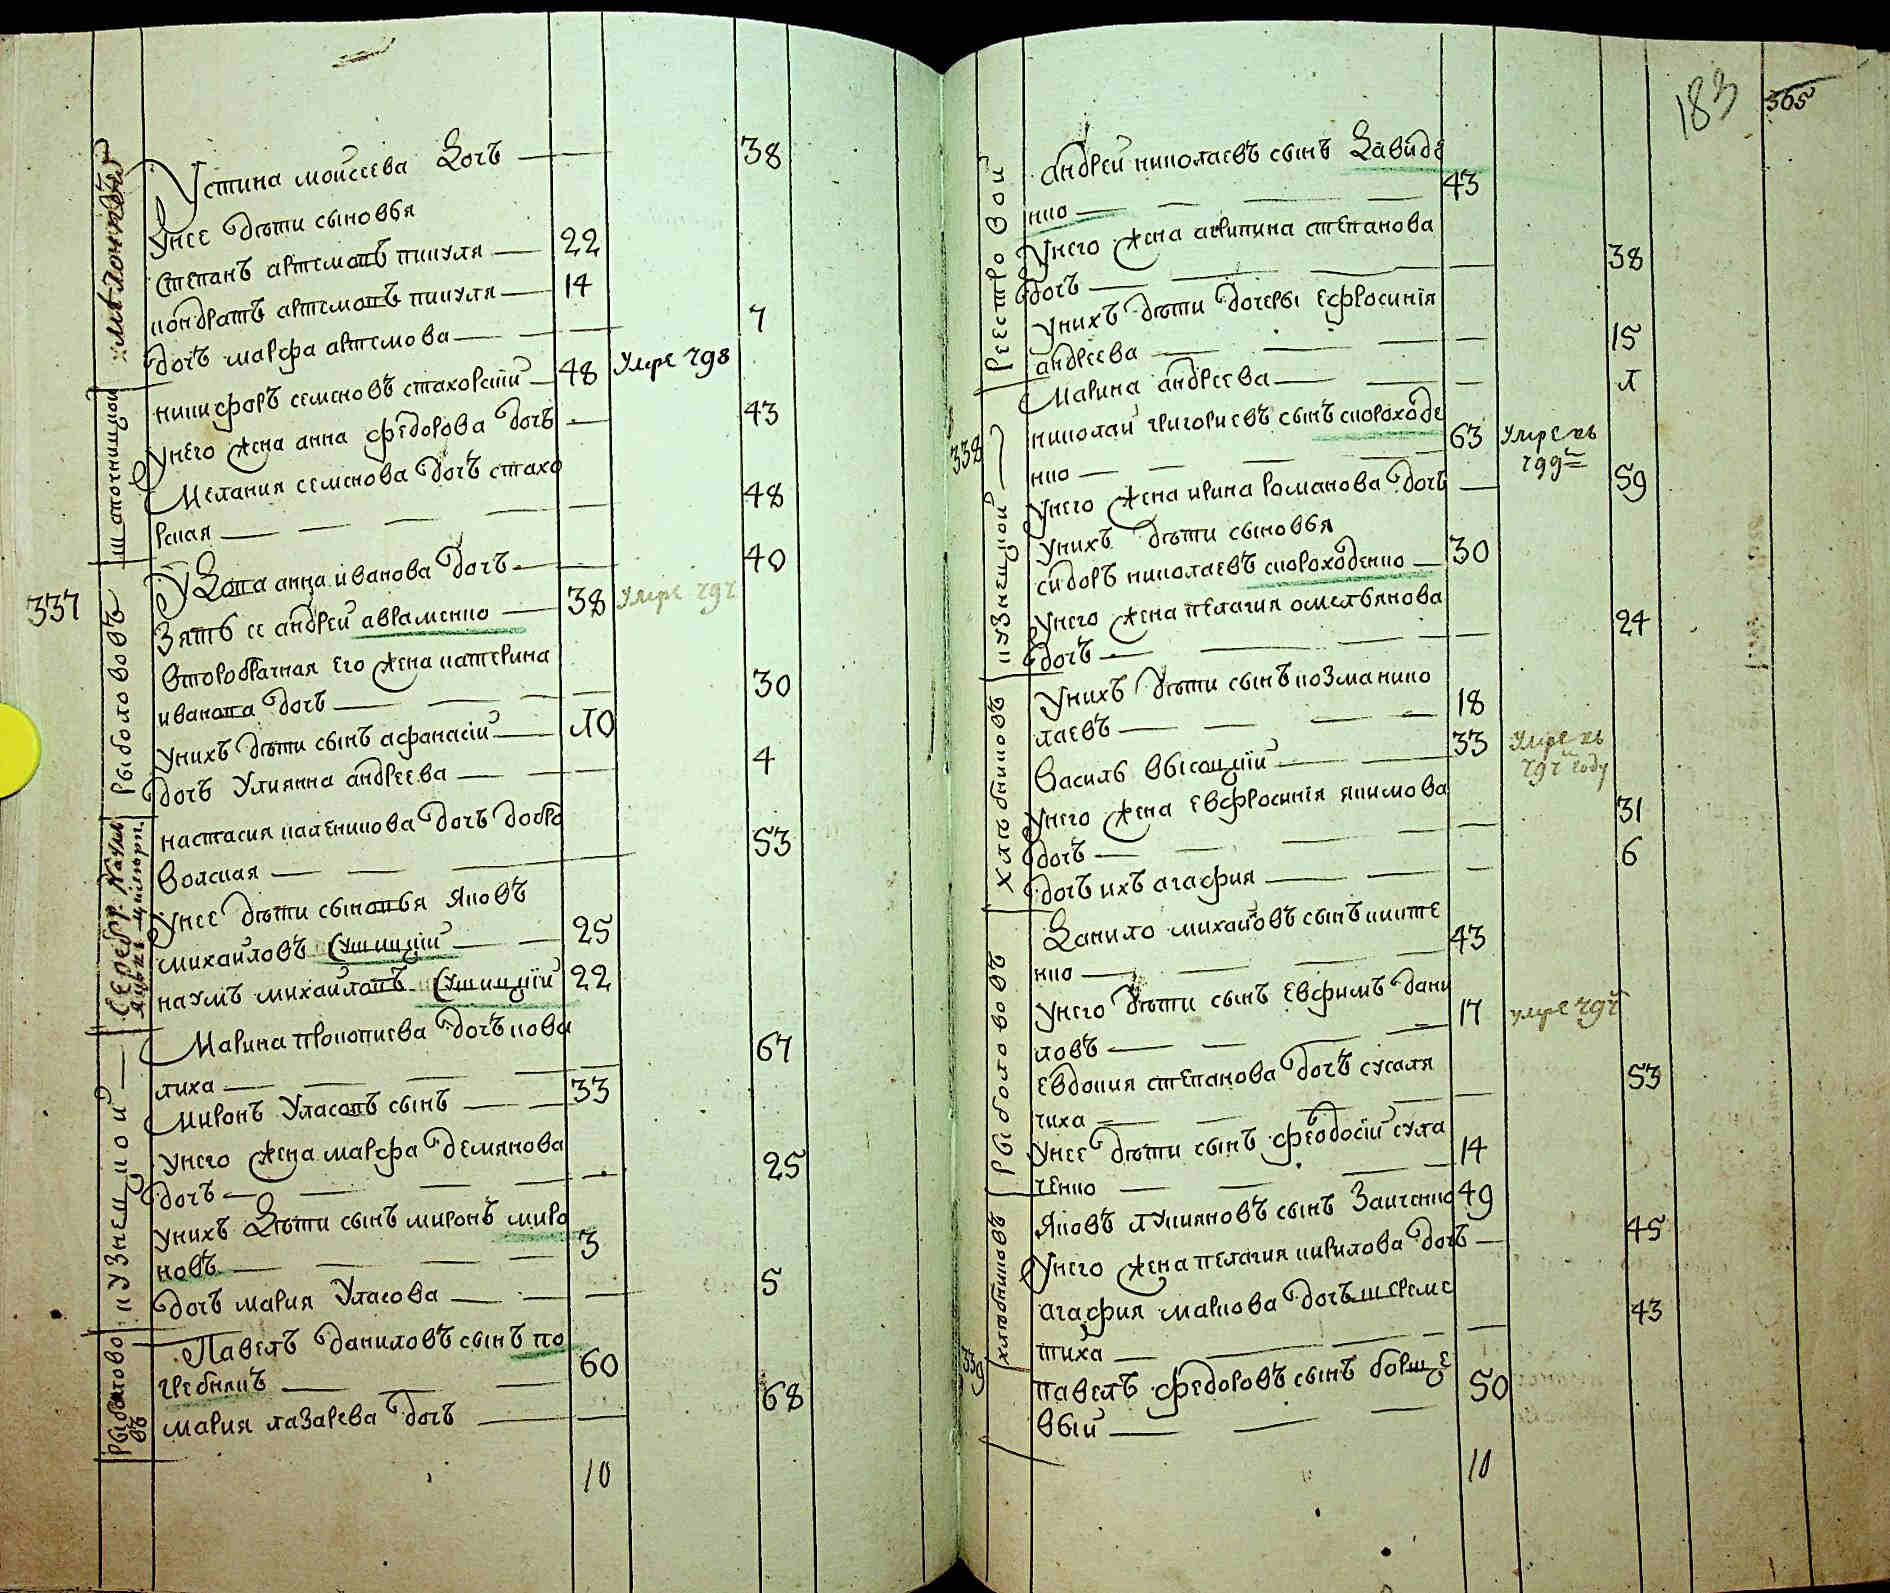 Устина моисеева Дочъ 38
Унее дѣти сыновья
Степанъ артемовъ пикуля 22
кондратъ артемовъ пикуля 14
дочъ марфа артемова 7
никифоръ семеновъ стахорский 48 Умре 798
Унего жена анна федорова дочъ 43
Мелания семенова дочъ стахо
рская 48
УДова анна иванова дочъ 40
337
Зять ее андрей авраменко 38 Умре 797
второбрачная его жена катерина
иванова дочъ 30
унихъ дѣти сынъ афанасий
дочъ Улиянна андреева 4
настасия каленикова дочъ добро
вольская 53
Унее дѣти сыновья Яковъ
михайловъ Сушицкий 25
наумъ михайловъ Сушицкий 22
Марина прокопиева дочъ кова
лиха 67
Миронъ Уласовъ сынъ 33
Унего жена марфа демянова
дочъ 25
Унихъ Дѣти сынъ миронъ миро
новъ 3
дочъ мария Уласова 5
Павелъ даниловъ сынъ по
гребнякъ 60
мария лазарева дочъ 68
10
шапочницкой
рыболововъ
кузнецкой
183
365
андрей николаевъ сынъ Давиде
нко 43
Унего жена акилина степанова
дочъ 38
Унихъ дѣти дочеры ефросиния
андреева 15
Марина андреева
338
николай григориевъ сынъ скороходе
нко 63 Умре въ
799
Унего жена ирина романова дочъ 59
Унихъ дѣти сыновья
сидоръ николаевъ скороходенко 30
Унего жена пелагия омельянова
дочъ 24
Унихъ дѣти сынъ козма нико
лаевъ 18
Василь высоцкий 33 Умре въ
797 году
Унего жена евфросиния якимова
дочъ 31
дочъ ихъ агафия 6
Данило михайловъ сынъ никите
нко 43
Унего дѣти сынъ евфимъ дани
ловъ 17 умре 797
евдокия степанова дочъ сусаля
чиха 53
Унее дѣти сынъ феодосий сула
ченко 14
Яковъ лукияновъ сынъ Зайченко 49
Унего жена пелагия кирилова дочъ 45
агафия маркова дочъ шереме
тиха 43
339
павелъ федоровъ сынъ борще
вый 50
10
реестровой
кузнецкой
хлѣбниковъ
рыболововъ
хлѣбниковъ